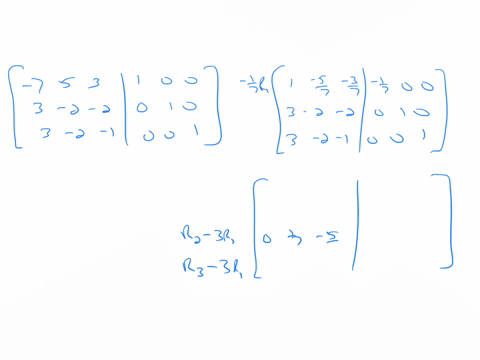 [ -7 5 3 | 1 0 0 ]
[ 3 -2 -2 | 0 1 0 ]
[ 3 -2 -1 | 0 0 1 ]
-1/7R₁ [ 1 -5/7 -3/7 | -1/7 0 0 ]
[ 3 -2 -2 | 0 1 0 ]
[ 3 -2 -1 | 0 0 1 ]
R₂-3R₁ [ 0 1/7 -5/7 | ]
R₃-3R₁